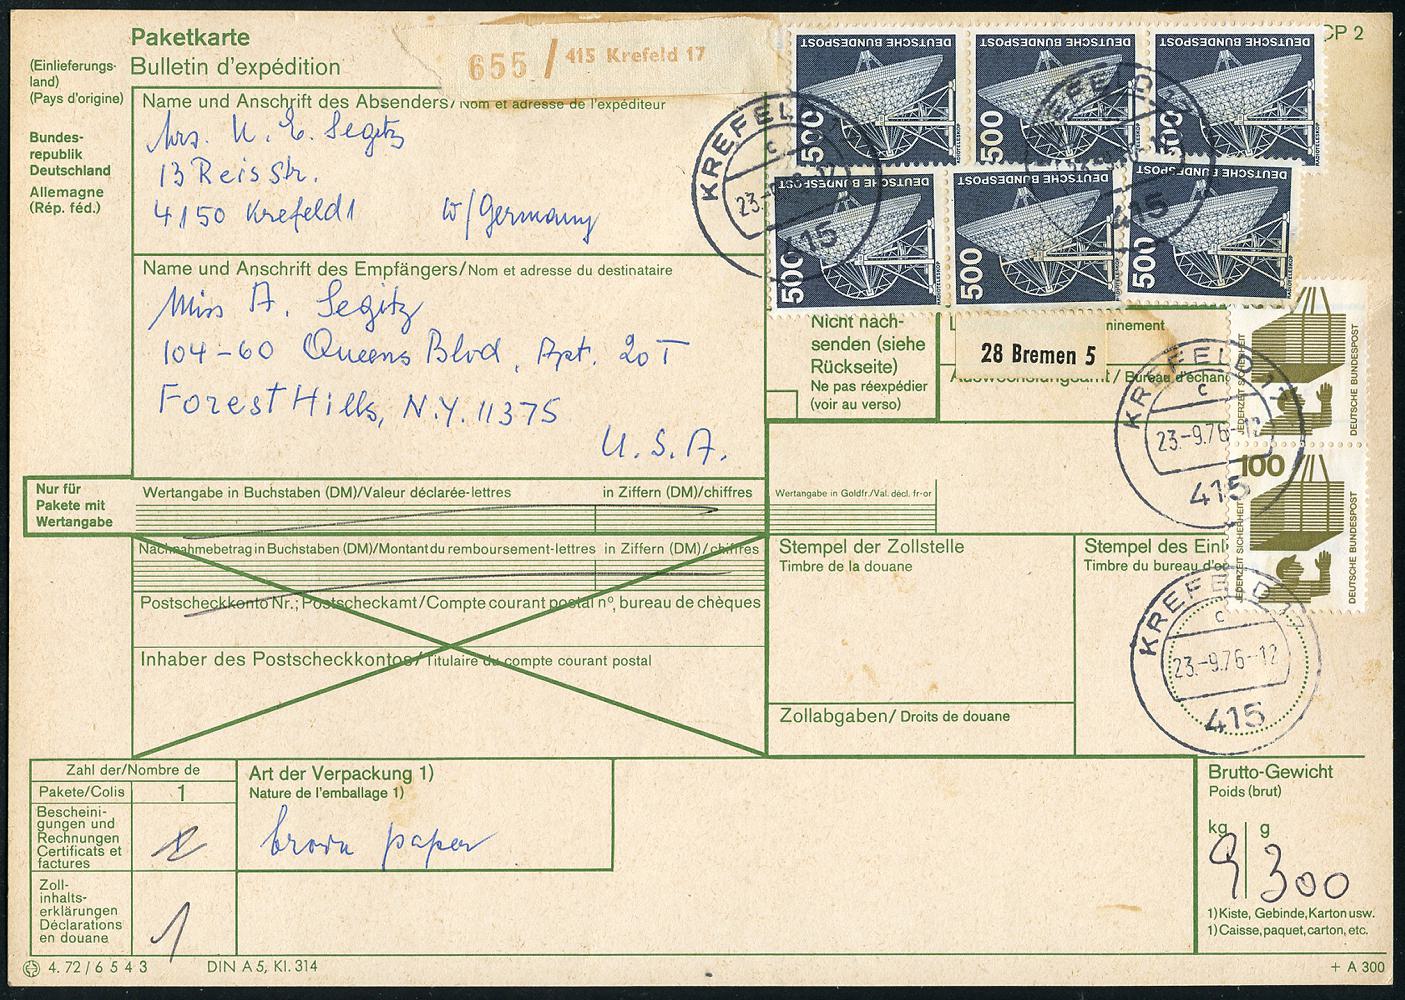 Paketkarte
Bulletin d'expédition
CP 2
655 / 415 Krefeld 17
(Einlieferungs-
land)
(Pays d'origine)
Bundes-
republik
Deutschland
Allemagne
(Rép. féd.)
Name und Anschrift des Absenders/Nom et adresse de l'expéditeur
Mrs. U. E. Segitz
13 Reis Str.
4150 Krefeld 1 W/Germany
Name und Anschrift des Empfängers/Nom et adresse du destinataire
Miss A. Segitz
104-60 Queens Blvd, Apt. 20 T
Forest Hills, N.Y. 11375
U.S.A.
DEUTSCHE BUNDESPOST DEUTSCHE BUNDESPOST DEUTSCHE BUNDESPOST
500 500 500
RADIOTELESKOP
DEUTSCHE BUNDESPOST DEUTSCHE BUNDESPOST DEUTSCHE BUNDESPOST
500 500 500
RADIOTELESKOP RADIOTELESKOP RADIOTELESKOP
KREFELD 17
c
23.-9.76.-12
415
KREFELD 17
415
Nicht nach-
senden (siehe
Rückseite)
Ne pas réexpédier
(voir au verso)
28 Bremen 5
Auswechslungsamt/Bureau d'échan
JEDERZEIT SICHERHEIT
DEUTSCHE BUNDESPOST
KREFELD 17
c
23.-9.76.-12
415
100
JEDERZEIT SICHERHEIT
DEUTSCHE BUNDESPOST
Nur für
Pakete mit
Wertangabe
Wertangabe in Buchstaben (DM)/Valeur déclarée-lettres in Ziffern (DM)/chiffres
Wertangabe in Goldfr./Val. décl. fr-or
Nachnahmebetrag in Buchstaben (DM)/Montant du remboursement-lettres in Ziffern (DM)/chiffres
Postscheckkonto Nr.; Postscheckamt/Compte courant postal n°, bureau de chèques
Inhaber des Postscheckkontos/Titulaire du compte courant postal
Stempel der Zollstelle
Timbre de la douane
Stempel des Einl
Timbre du bureau d'o
KREFELD 17
c
23.-9.76.-12
415
Zollabgaben/Droits de douane
Zahl der/Nombre de
Pakete/Colis 1
Bescheini-
gungen und
Rechnungen
Certificats et
factures
Zoll-
inhalts-
erklärungen
Déclarations
en douane
1
Art der Verpackung 1)
Nature de l'emballage 1)
brown paper
Brutto-Gewicht
Poids (brut)
kg g
9 300
1) Kiste, Gebinde, Karton usw.
1) Caisse, paquet, carton, etc.
4. 72 / 6 5 4 3 DIN A 5, Kl. 314
+ A 300